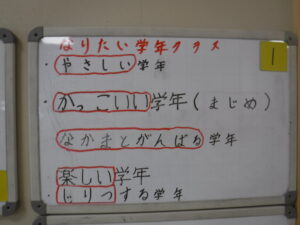 なりたい学年クラス
・やさしい学年
・かっこいい学年(まじめ)
なかまとがんばる学年
楽しい学年
・じりつする学年
1